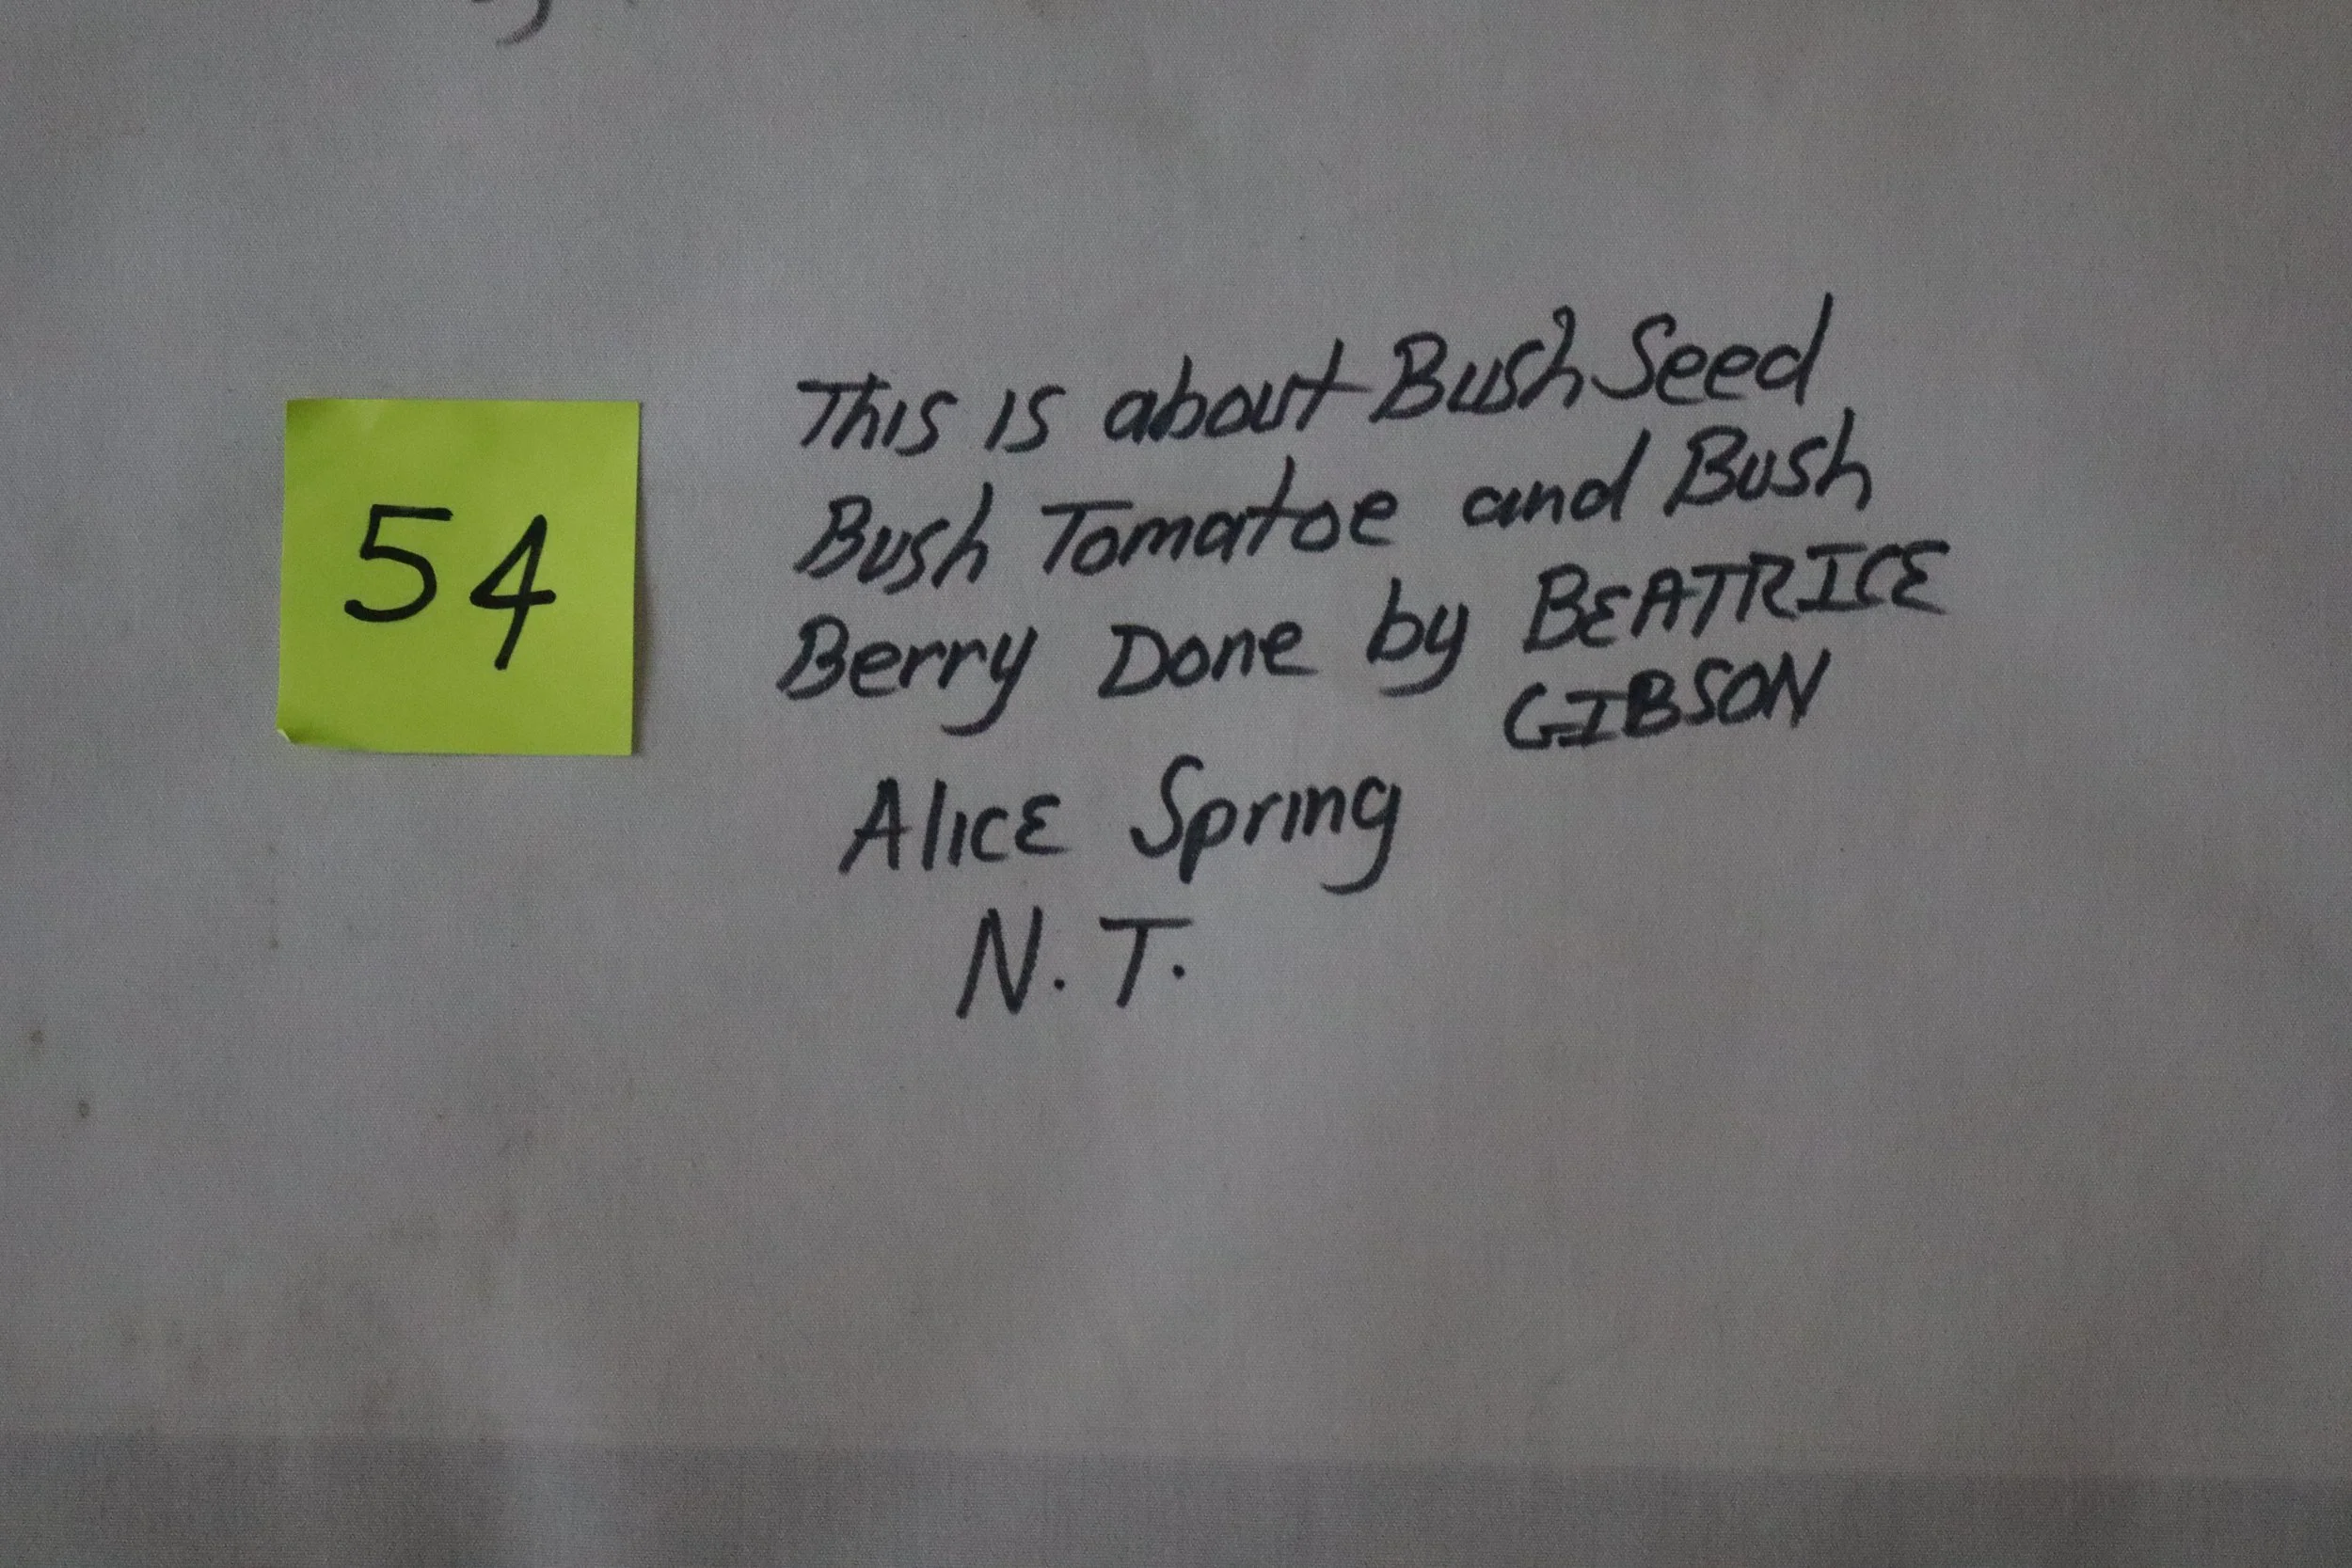 54
This is about Bush Seed
Bush Tomatoe and Bush
Berry Done by BEATRICE
GIBSON
Alice Spring
N.T.